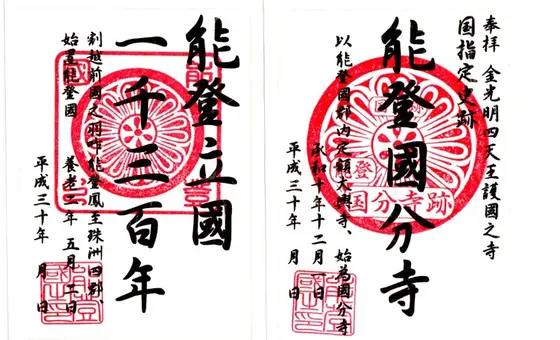 奉拝 金光明四天王護國之寺
国指定史跡
能登國分寺
以能登國郡内定額大興寺、始為國分寺
承和十年十二月一日
平成三十年 月 日
登
国分寺跡
能登立國
一千三百年
割越前國之羽咋能登鳳至珠洲四郡、
始置能登國 養老二年 五月二日
平成三十年 月 日